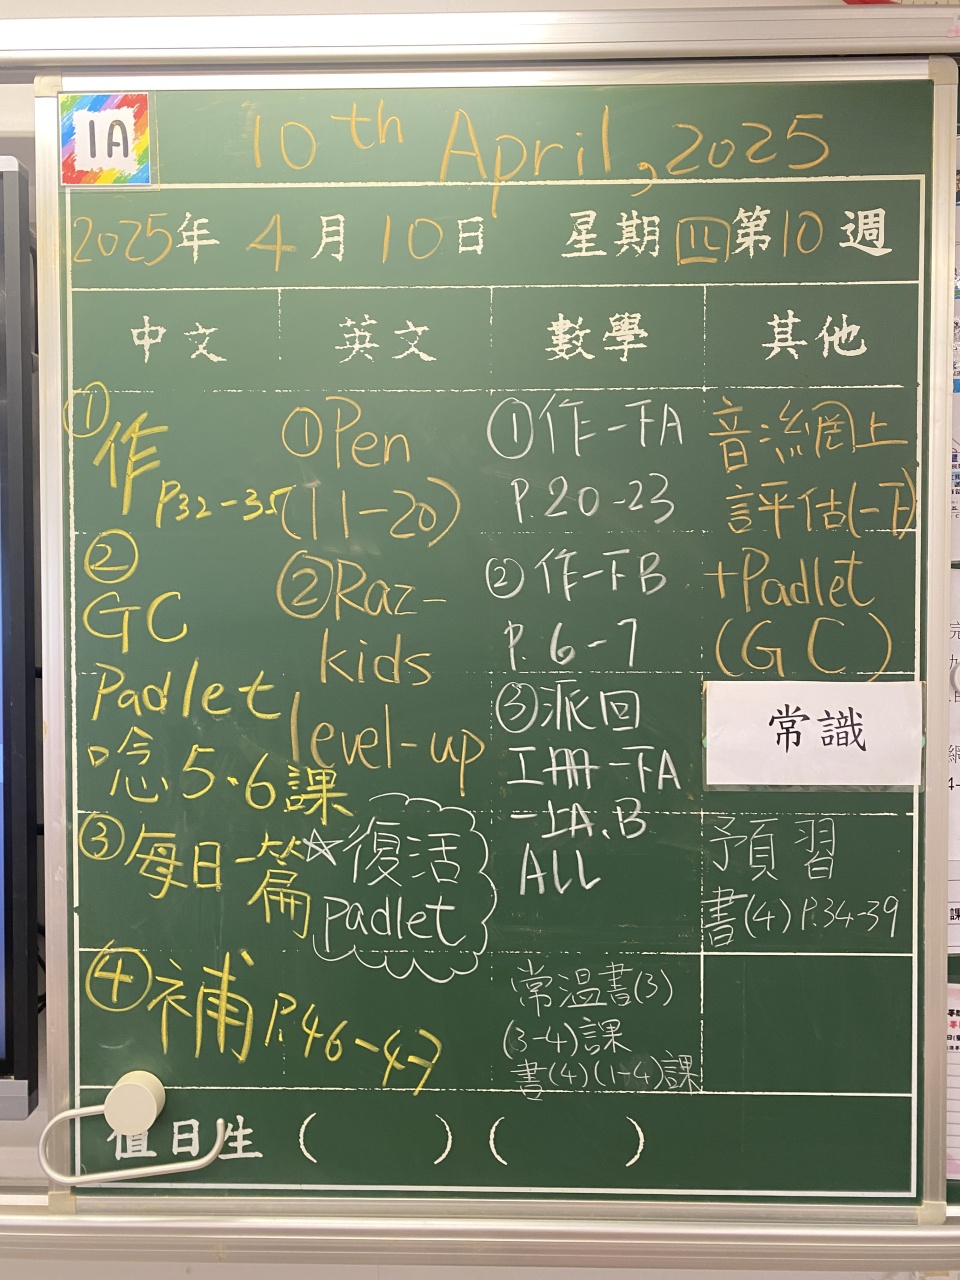 1A
10th April, 2025
2025年 4月10日 星期四第10週
中文
①
作
P32-35
②
GC
Padlet
唸5.6課
③每日一篇
④補P.46-47
英文
①Pen
(11-20)
②Raz-
kids
level-up
☆復活
Padlet
數學
①作一下A
P.20-23
②作一下B
P.6-7
③派回
工冊一下A
一上A、B
ALL
常溫書(3)
(3-4)課
書(4)(1-4)課
其他
音流網上
評估(一下)
+Padlet
(GC)
常識
預習
書(4)P.34-39
值日生( )( )